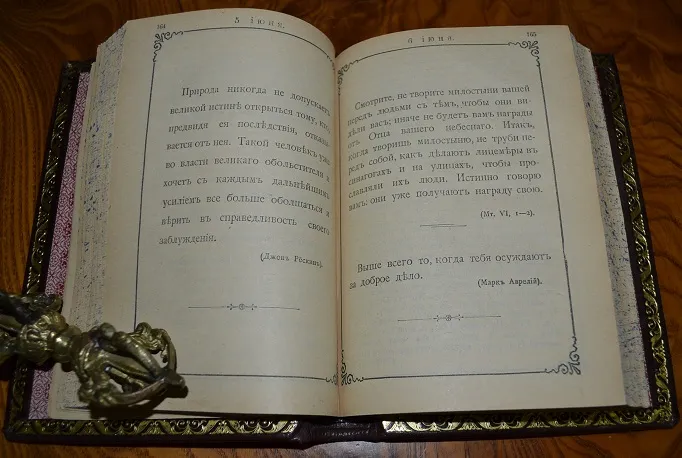 164
5 іюня.
Природа никогда не допускаетъ
великой истинѣ открыться тому, кто,
предвидя ея послѣдствія, отказы-
вается отъ нея. Такой человѣкъ уже
во власти великаго обольстителя и
хочетъ съ каждымъ дальнѣйшимъ
усиліемъ все больше обольщаться и
вѣрить въ справедливость своего
заблужденія.
(Джонъ Рёскинъ).
6 іюня.
165
Смотрите, не творите милостыни вашей
передъ людьми съ тѣмъ, чтобы они ви-
дѣли васъ; иначе не будетъ вамъ награды
отъ Отца вашего небеснаго. Итакъ,
когда творишь милостыню, не труби пе-
редъ собой, какъ дѣлаютъ лицемѣры въ
синагогахъ и на улицахъ, чтобы про-
славляли ихъ люди. Истинно говорю
вамъ: они уже получаютъ награду свою.
(Мѳ. VI, 1—2).
Выше всего то, когда тебя осуждаютъ
за доброе дѣло.
(Маркъ Аврелій).